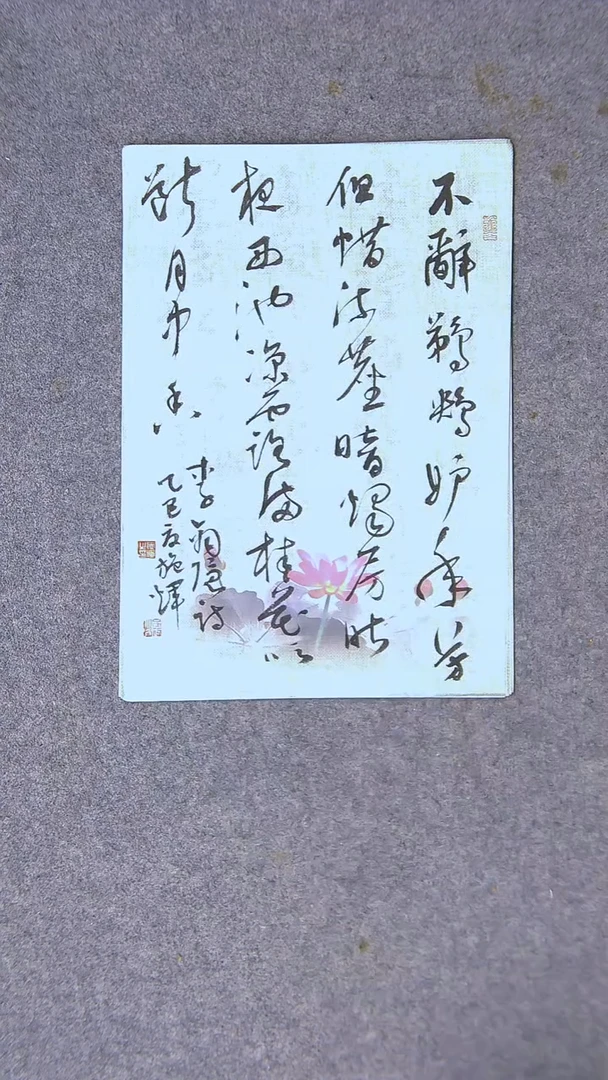 不辭鵜鴂妒年芳
但惜流塵暗燭房昨
夜西池涼露滿桂花吹
斷月中香
李商隱詩
乙巳夏施輝